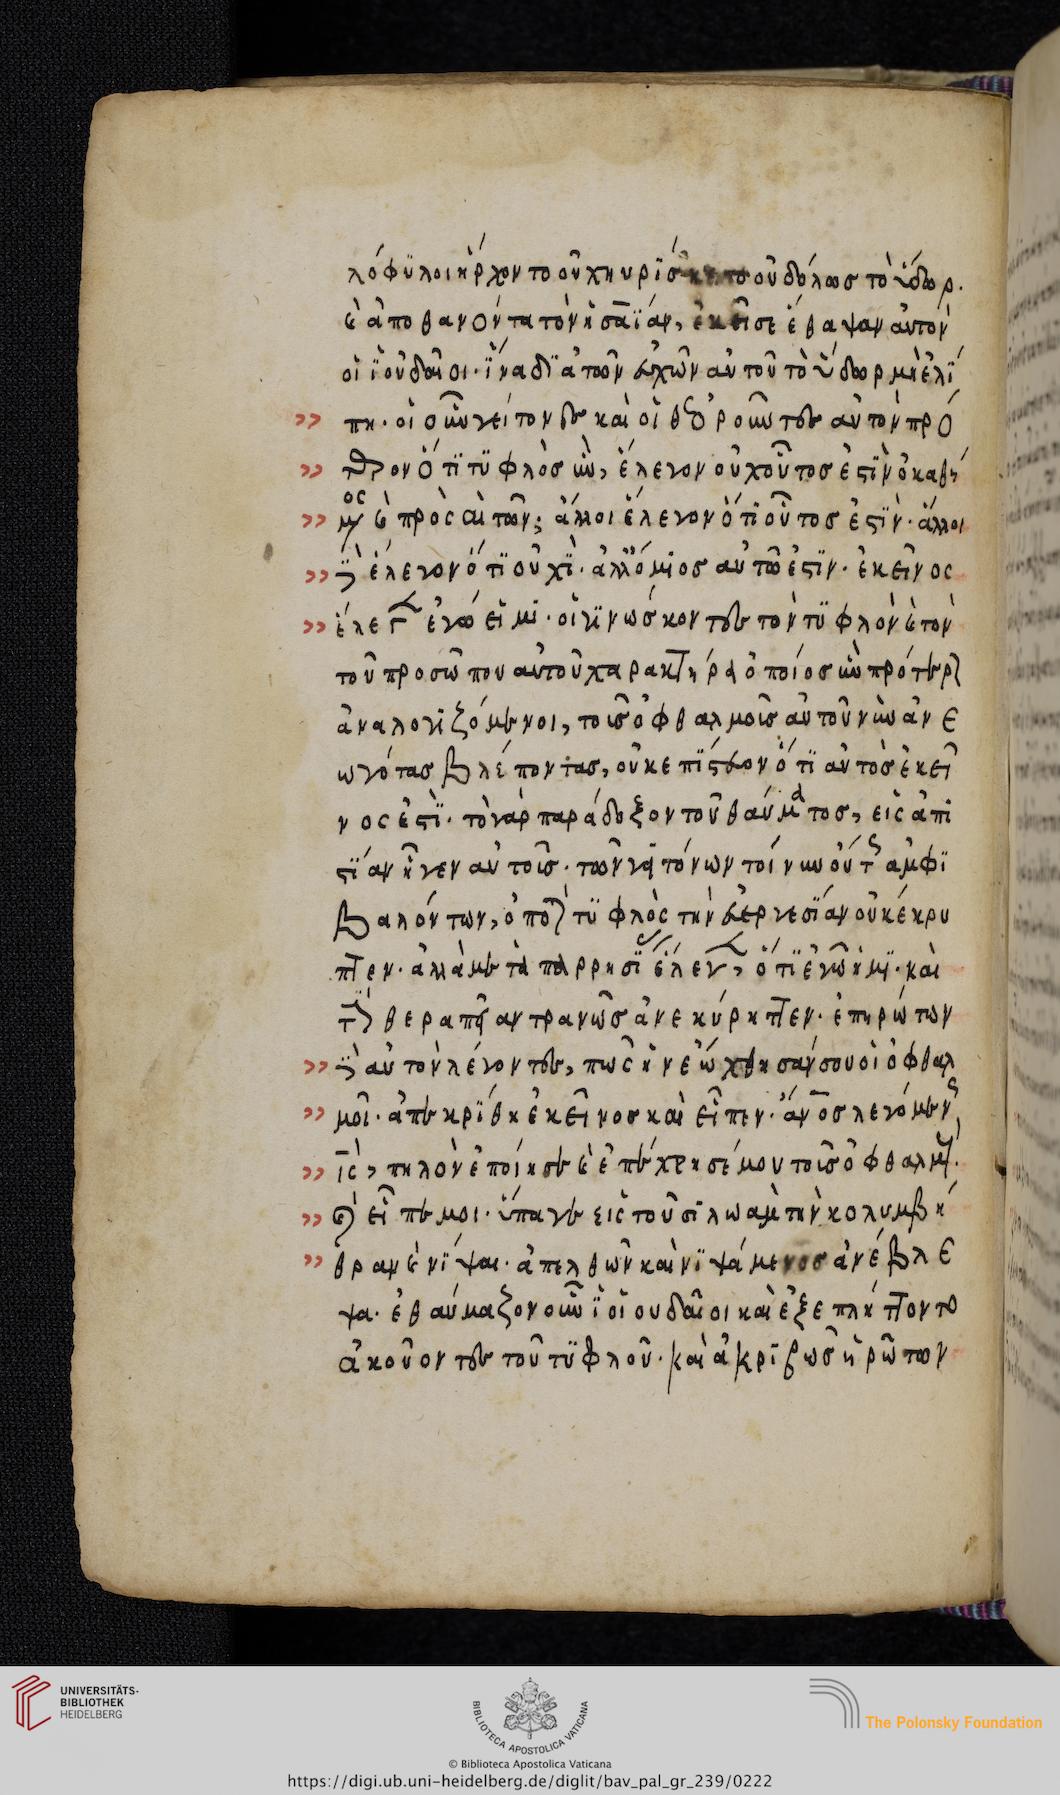 λόφϋλοι ἤρχοντο οὐχ ηὑρΐσκετο οὐδόλωσ τὸ ὕδωρ.
καὶ ἀποθανόντα τὸν ἡσαΐαν, ἐκεῖσε ἔθαψαν αὐτὸν
οἱ ϊουδαῖοι· ἵνα δϊ' ἀπὸ τῶν εὐχῶν αὐτοῦ τὸ ὕδωρ μὴ ἐλΐ
πη· οἱ οὖν γείτονες καὶ οἱ θεωροῦντες αὐτὸν πρό
τερον ὅτϊ τϋφλὸσ ἦν, ἔλεγον οὐχ οὗτοσ ἐςϊν ὁ καθή
μενος καὶ προσαιτῶν; ἄλλοι ἔλεγον ὅτϊ οὗτοσ ἐςϊν· ἄλλοι
δὲ ἔλεγον ὅτϊ οὐχϊ· ἀλλ' ὅμοιος αὐτῶ ἐςϊν· ἐκεῖνος
ἔλεγεν ἐγώ εἰμι· οἱ γϊνώσκοντες τὸν τϋφλὸν καὶ τὸν
τοῦ προσώπου αὐτοῦ χαρακτῆρα ὁποίος ἦν πρότερον
ἀναλογϊζόμενοι, τοῖσ ὀφθαλμοῖσ αὐτοῦ νῦν ἀνε
ωγότασ βλέποντασ, οὐκ ἐπίςευον ὅτϊ αὐτὸσ ἐκεῖ
νος ἐςϊ· τὸ γὰρ παράδοξον τοῦ θαύματοσ, εἰς ἀπι
ςΐαν ἦγεν αὐτοῖσ· τῶν γειτόνων τοίνυν οὕτως ἀμφϊ
βαλόντων, ὁ ποτὲ τϋφλὸς τὴν εὐεργεσΐαν οὐκ ἔκρυ
πτεν· ἀλλὰ μετὰ παρρησϊας ἔλεγεν, ὅτϊ ἐγώ ἠμϊ· καὶ
τὸν θεραπεύσαντα τρανῶσ ἀνεκύρηττεν· ἐπηρώτων
δὲ αὐτὸν λέγοντες, πως ἠνεώχθησάν σου οἱ ὀφθαλ
μοῖ· ἀπεκρΐθη ἐκεῖνοσ καὶ εἶπεν· ἄνος λεγόμενος
ις, πηλὸν ἐποίησε καὶ ἐπέχρησέ μου τοῖσ ὀφθαλμούς·
καὶ εἶπε μοι· ὕπαγε εἰς τοῦ σϊλωὰμ τὴν κολυμβή
θραν καὶ νϊψαι· ἀπελθὼν καὶ νϊψάμενοσ ἀνέβλε
ψα· ἐθαύμαζον οὖν ϊοἱουδαῖοι καὶ ἐξεπλήττοντο
ἀκούοντες τοῦ τϋφλοῦ· καὶ ἀκρϊβωσ ἠρώτων
UNIVERSITÄTS-
BIBLIOTHEK
HEIDELBERG
BIBLIOTECA APOSTOLICA VATICANA
The Polonsky Foundation
© Biblioteca Apostolica Vaticana
https://digi.ub.uni-heidelberg.de/diglit/bav_pal_gr_239/0222